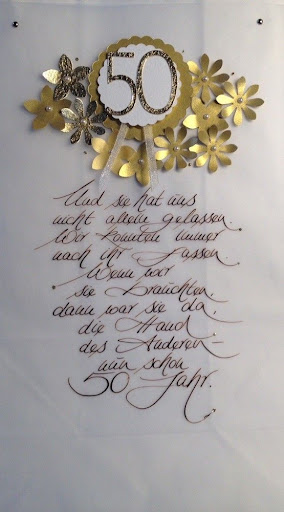 50
Und sie hat uns
nicht alleine gelassen.
Wir konnten immer
nach ihr fassen.
Wenn wir
sie brauchten,
dann war sie da,
die Hand
des Anderen –
nun schon
50 Jahr.